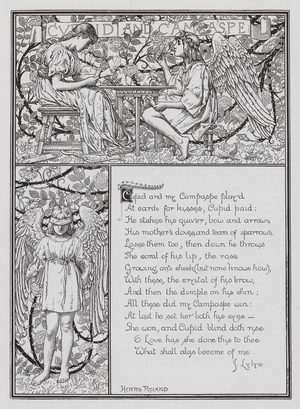 CUPID AND CAMPASPE
Cupid and my Campaspe play'd
At cards for kisses, Cupid paid:
He stakes his quiver, bow and arrows
His mother's doves and team of sparrows,
Loses them too, then down he throws
The coral of his lip, the rose
Growing on's cheek (but none knows how),
With these, the crystal of his brow,
And then the dimple on his chin;
All these did my Campaspe win:
At last he set her both his eyes —
She won, and Cupid blind doth rise
O Love has she done this to thee
What shall alas become of me
J Lylye
HENRY RYLAND